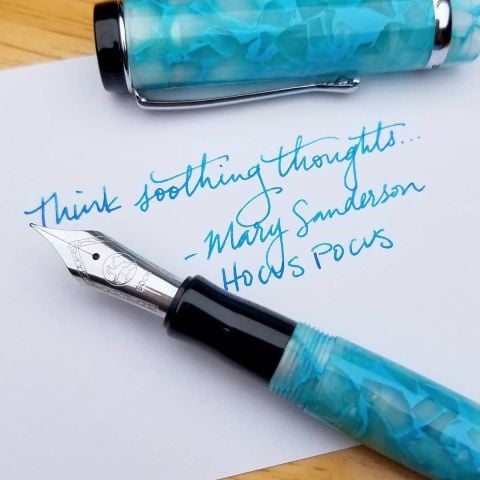 Think soothing thoughts...
- Mary Sanderson
HOCUS POCUS